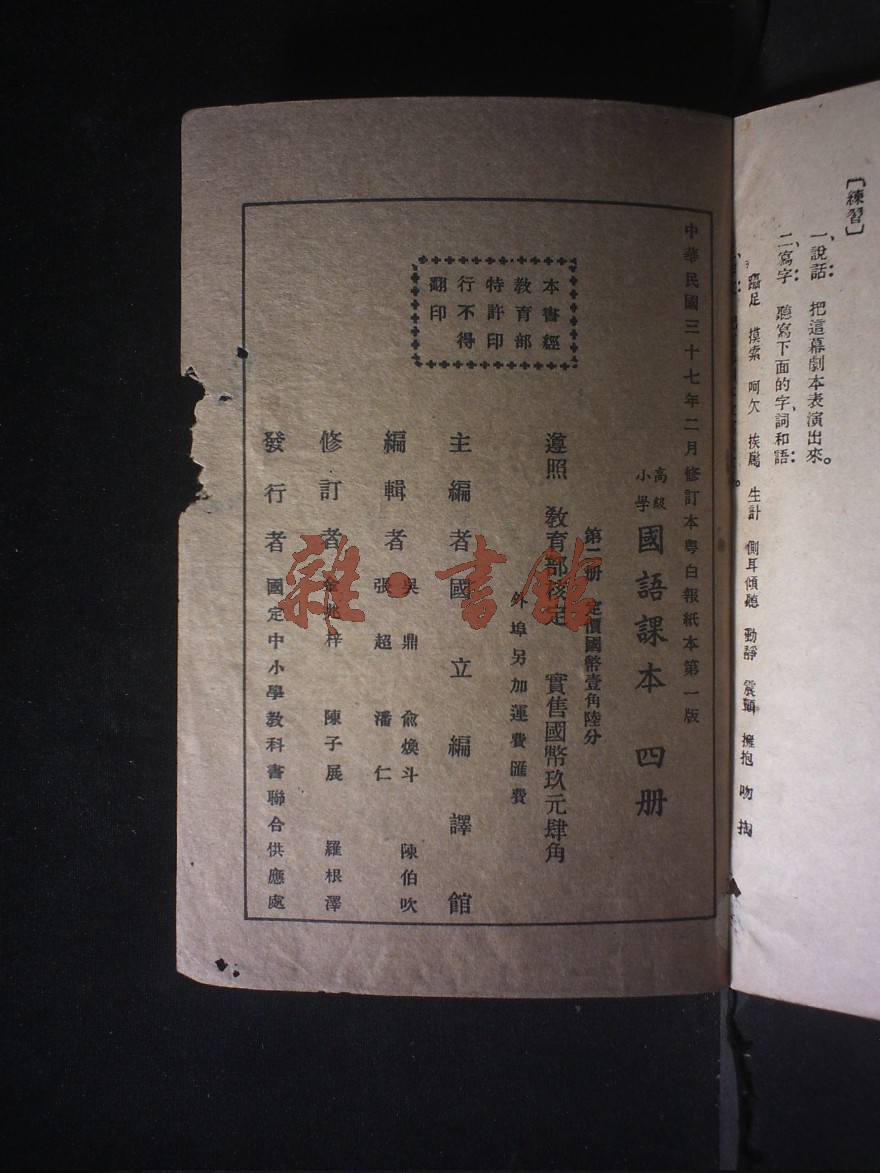 〔練習〕
一、說話： 把這幕劇本表演出來。
二、寫字： 聽寫下面的字、詞和語：
躡足 摸索 呵欠 挨 生計 側耳傾聽 動靜 震顫 擁抱 吻 掏
中華民國三十七年二月修訂本粵白報紙本第一版
高級小學 國語課本 四册
第二册 定價國幣壹角陸分
遵照 教育部核定 實售國幣玖元肆角
外埠另加運費匯費
本書經
教育部
特許印
行不得
翻印
主編者 國立編譯館
編輯者 吳鼎 俞煥斗 陳伯吹
張超 潘仁
修訂者 金兆梓 陳子展 羅根澤
發行者 國定中小學教科書聯合供應處
雜·書館